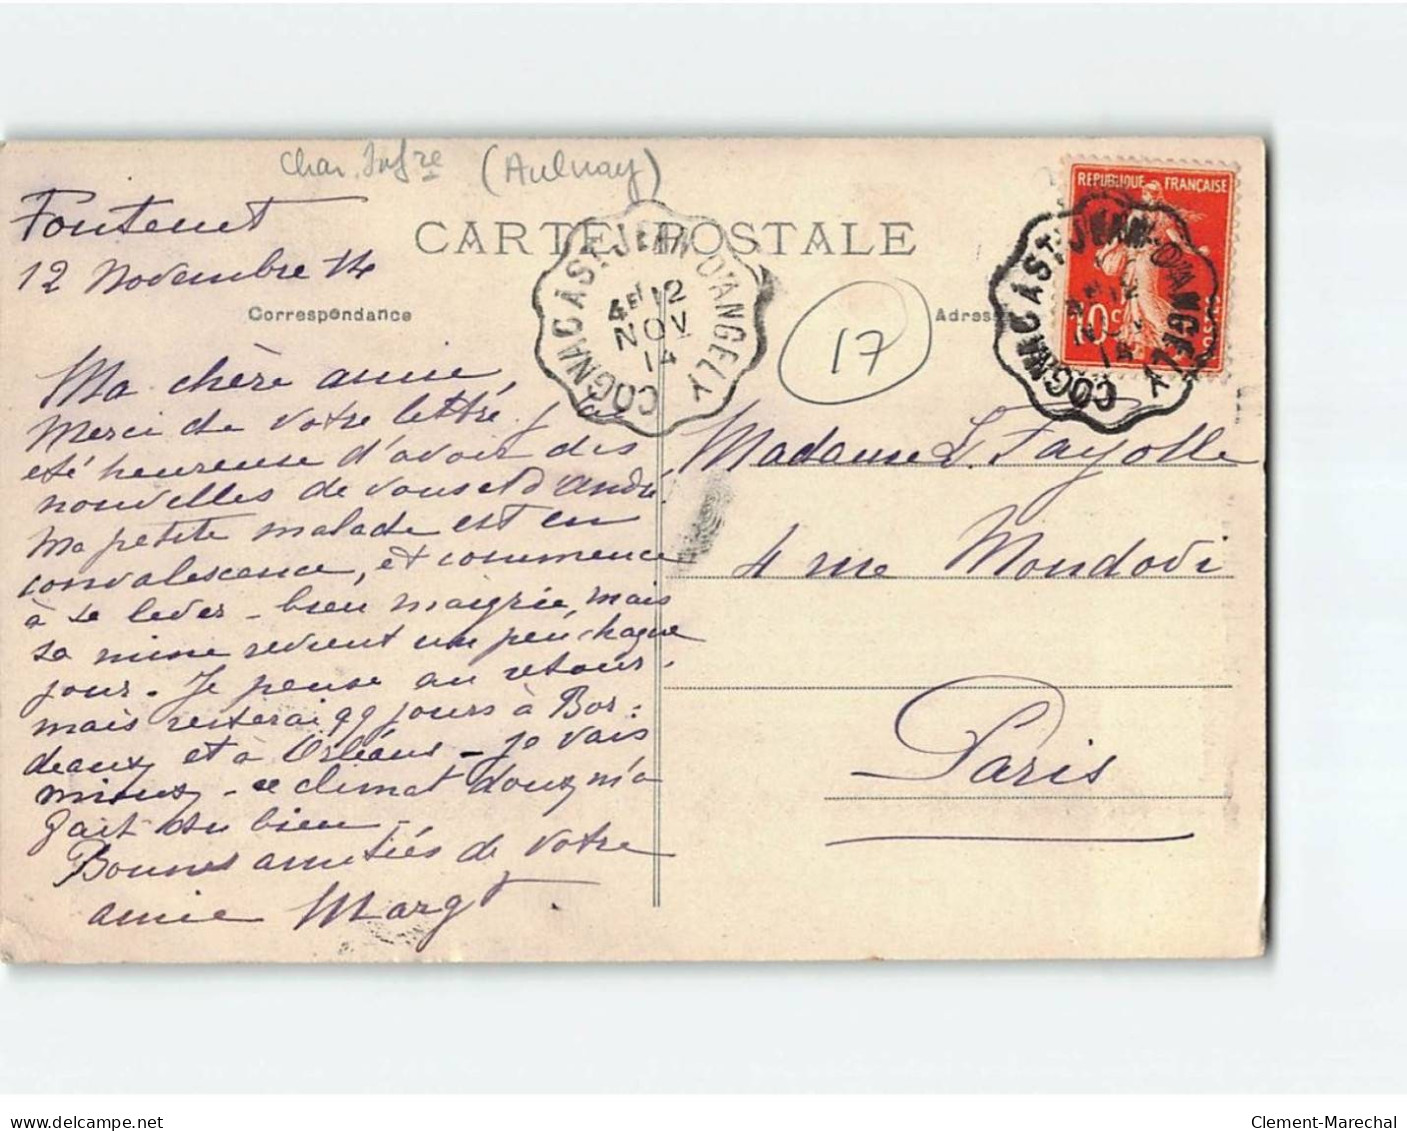 Char. Infre (Aulnay)
Fontenet
12 Novembre 14
CARTE POSTALE
Correspondance
Adresse
COGNAC A ST JEAN-D'ANGELY
4E 12
NOV
14
17
REPUBLIQUE FRANÇAISE
10c
POSTES
COGNAC A ST JEAN-D'ANGELY
12
NOV
14
Ma chère amie,
Merci de votre lettre, j'ai
été heureuse d'avoir des
nouvelles de vous et d'André.
Ma petite malade est en
convalescence, et commence
à se lever - bien maigrie, mais
sa mine revient un peu chaque
jour - Je pense au retour.
mais resterai qq jours à Bor=
deaux et à Orléans - je vais
mieux - ce climat doux m'a
fait du bien -
Bonnes amitiés de votre
amie Margt
Madame L. Fayolle
4 rue Mondovi
Paris
www.delcampe.net
Clement-Marechal